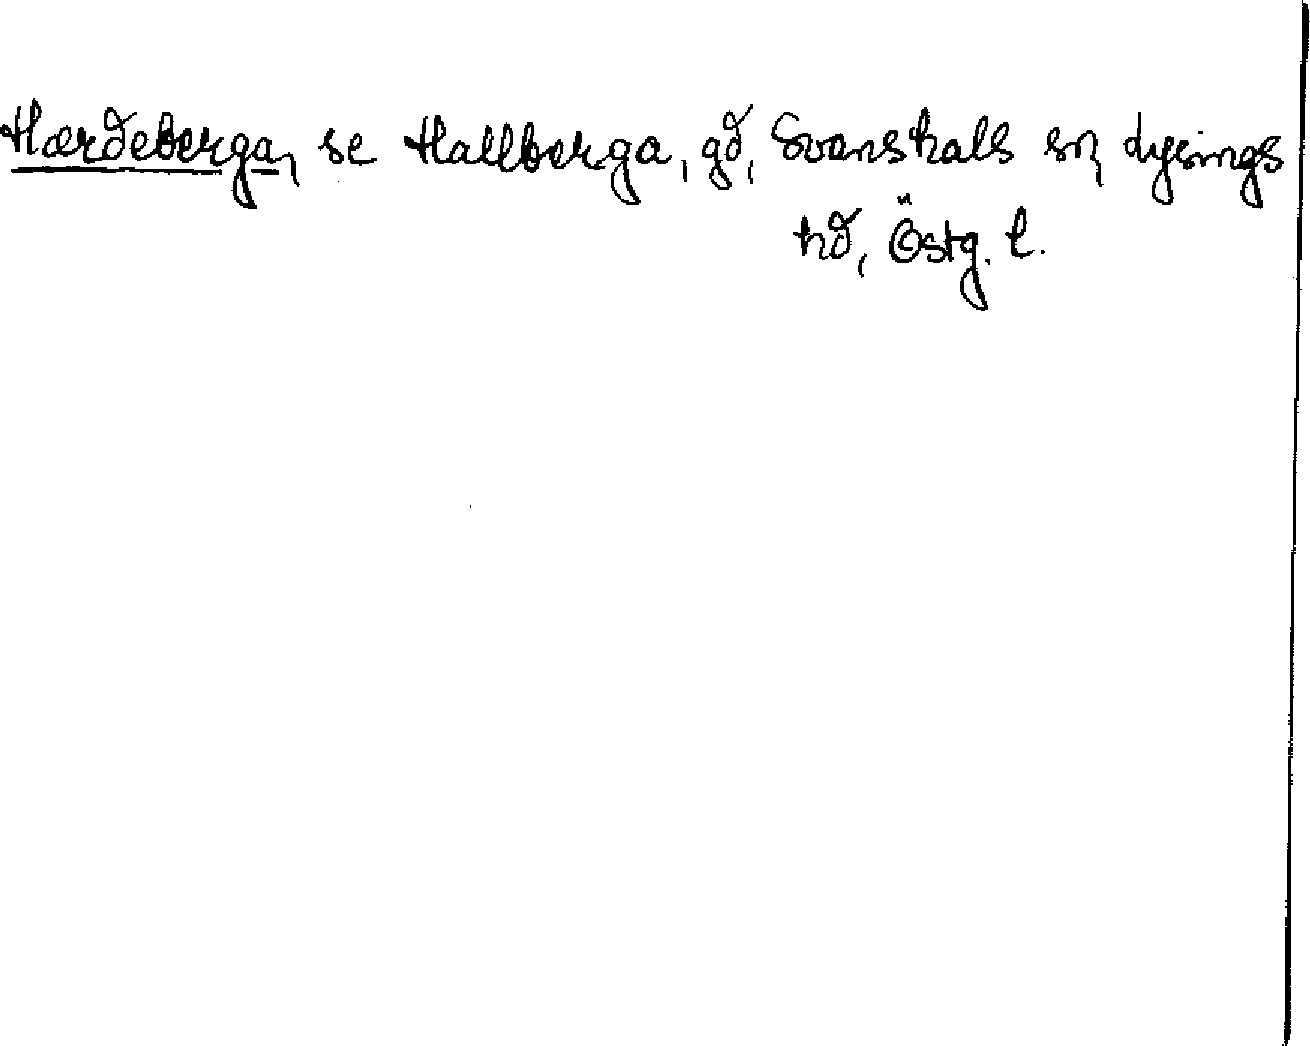 Hærdeberga, se Hallberga, gd, Svanshals sn, Lysings
hd, Östg. l.